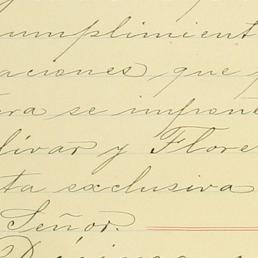 umplimient
aciones que
ra se impone
lívar y Flore
ta exclusiva
Señor.